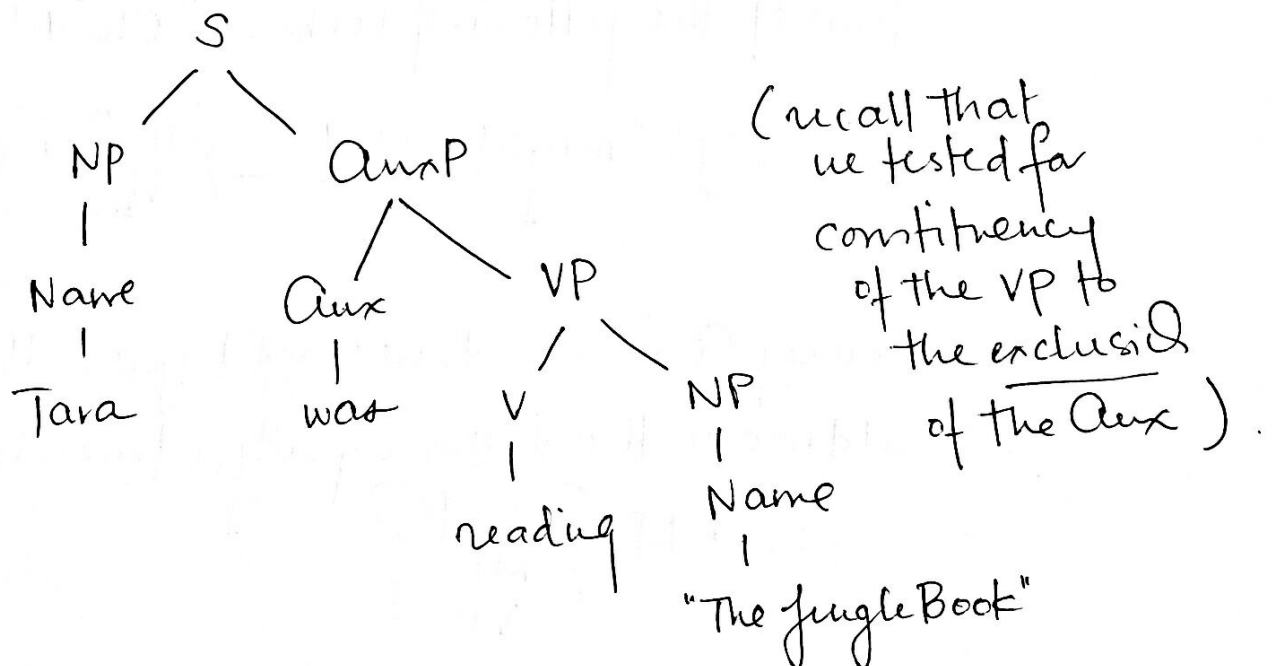 S
NP AuxP
Name Aux VP
Tara was V NP
reading Name
"The Jungle Book"
(recall that
we tested for
constituency
of the VP to
the exclusion
of the Aux).